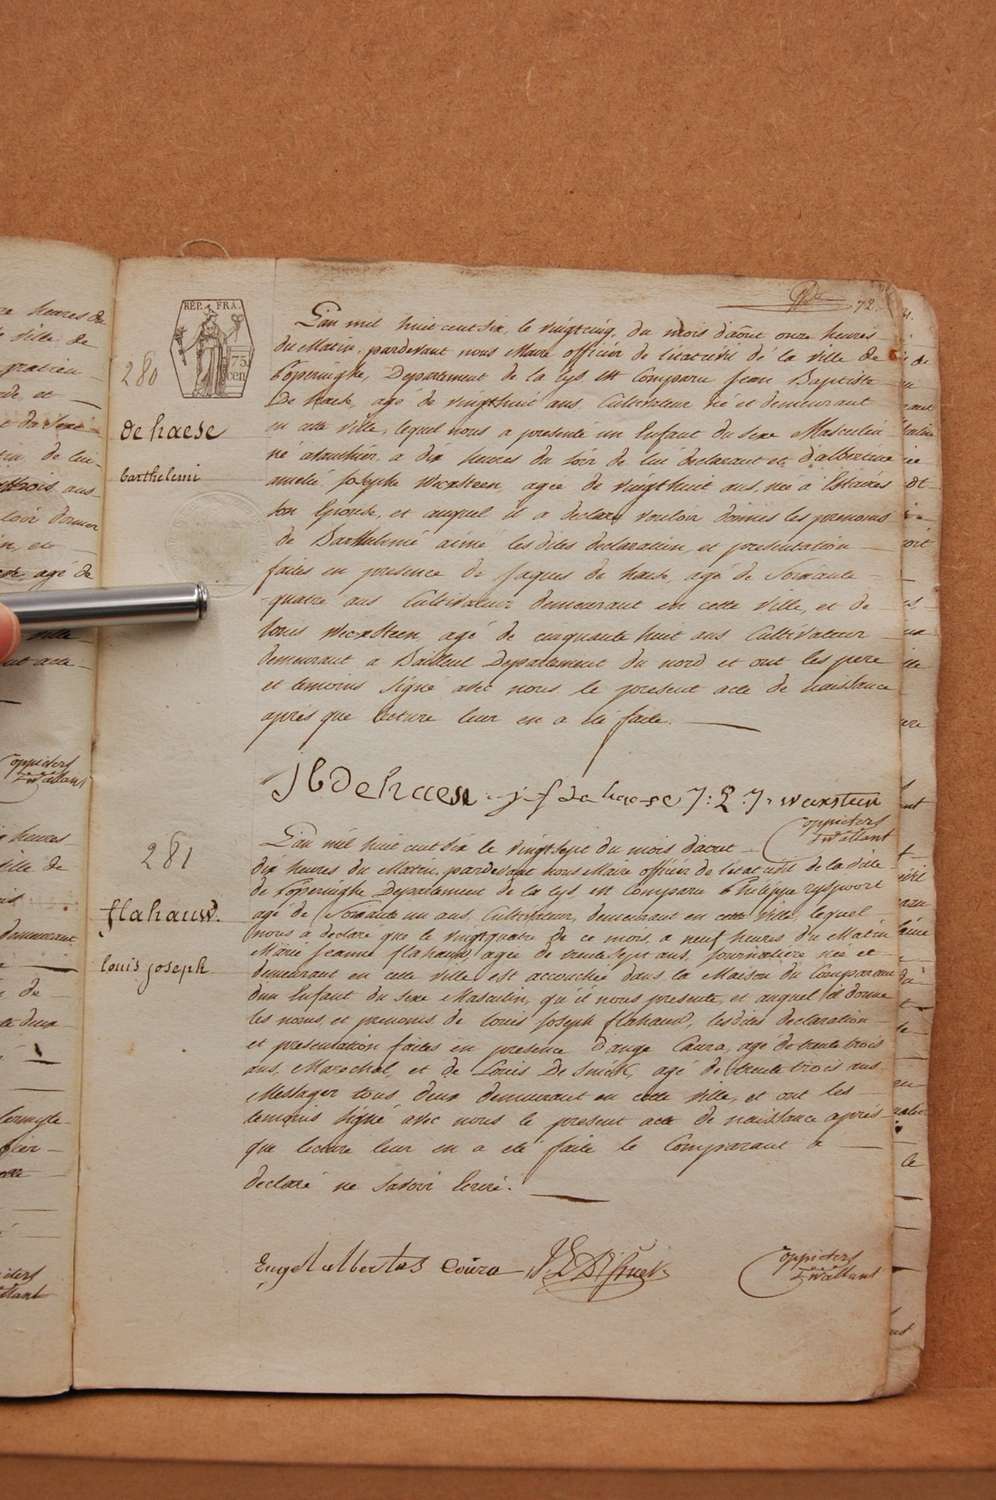 72.
REP. FRA.
75
cen
280
de haese
barthelemi
L'an mil huit cent six, le vingtcinq du mois d'aout onze heures
du Matin, pardevant nous Maire officier de l'etat civil de la ville de
Poperinghe, Departement de la Lys est Comparu Jean Baptiste
De haese, agé de vingthuit ans Cultivateur né et demeurant
en cette ville, lequel nous a presenté un Enfant du sexe Masculin
né avanthier, a dix heures du soir de lui declarant et d'albertine
amelie Josephe Wecxsteen, agée de vingthuit ans, née à Estaires
son Epouse, et auquel il a declaré vouloir donner les prenoms
de Barthelemé aimé les dites declaration et presentation
faites en presence de Jaques de haese, agé de soixante
quatre ans Cultivateur demeurant en cette ville, et de
Louis Wecxsteen, agé de cinquante huit ans Cultivateur
demeurant a Bailleul Departement du nord et ont les pere
et temoins signé avec nous le present acte de naissance
aprés que lecture leur en a eté faite.
J b De haese j f de haese wecxsteen
281
flahauw.
louis joseph
L'an mil huit cent six le vingtsept du mois d'aout
dix heures du Matin, pardevant nous Maire officier de l'etat civil de la ville
de Poperinghe Departement de la Lys est Comparu Philippe ryspoort
agé de Soixante un ans, Cultivateur, demeurant en cette ville, lequel
nous a declaré que le vingtquatre de ce mois, a neuf heures du Matin
Marie Jeanne flahauw, agée de trente sept ans, journaliere née et
demeurant en cette ville est accouchée dans la Maison du Comparant
d'un Enfant du sexe Masculin, qu'il nous presente, et auquel il donne
les noms et prenoms de louis joseph flahauw, les dites declaration
et presentation faites en presence d'ange Caura, agé de trente trois
ans, Marechal, et de Louis De Snick, agé de trente trois ans
Messager tous deux demeurant en cette ville, et ont les
temoins signé avec nous le present acte de naissance aprés
que lecture leur en a eté faite le Comparant a
declaré ne savoir Ecrire.
Engel albertus Coura